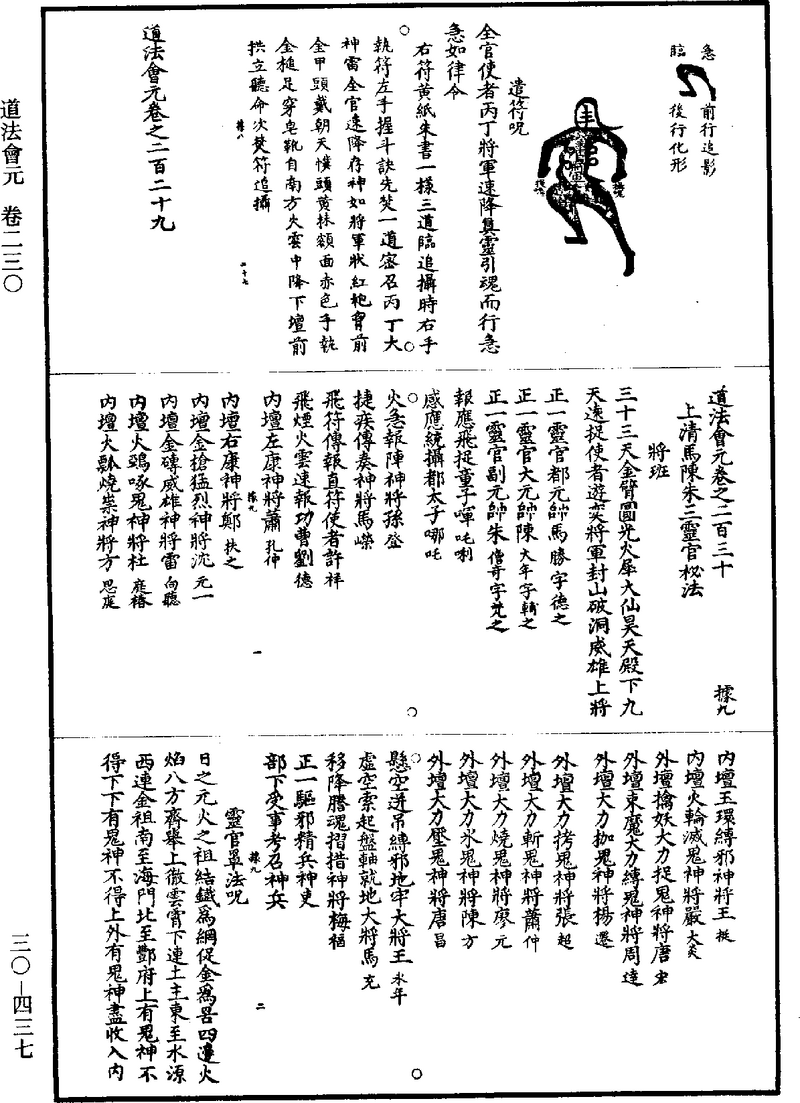 道法會元 卷二三〇
急 前行追影
臨 後行化形
遣符呪
全官使者丙丁將軍速降真靈引魂而行急
急如律令
右符黃紙朱書一樣三道臨追攝時右手
執符左手握斗訣先焚一道密召丙丁大
神雷全官速降存神如將軍狀紅袍胷前
全甲頭戴朝天幞頭黃抹額面赤色手執
金槌足穿皂靴自南方火雲中降下壇前
拱立聽命次焚符追攝
道法會元卷之二百二十九
道法會元卷之二百三十 據九
上清馬陳朱三靈官秘法
將班
三十三天金臂圓光火犀大仙昊天殿下九
天遠捉使者遊奕將軍封山破洞威雄上將
正一靈官都元帥馬 勝字德之
正一靈官大元帥陳 大年字輔之
正一靈官副元帥朱 僧奇字梵之
報應飛捉童子㖞 吒唎
感應統攝都太子哪吒
火急報陣神將孫 登
捷疾傳奏神將馬 嶸
飛符傳報直符使者許 祥
飛煙火雲速報功曹劉 德
內壇左康神將蕭 孔仲
內壇右康神將鄭 扶之
內壇金槍猛烈神將沈 元一
內壇金磚威雄神將雷 向聽
內壇火鵶啄鬼神將杜 庭椿
內壇火瓢燒祟神將方 思庭
據九 一
內壇玉環縛邪神將王 挺
內壇火輪滅鬼神將嚴 大炎
外壇擒妖大力捉鬼神將唐 宏
外壇束魔大力縛鬼神將周 達
外壇大力枷鬼神將楊 遷
外壇大力拷鬼神將張 超
外壇大力斬鬼神將蕭 仲
外壇大力燒鬼神將廖 元
外壇大力水鬼神將陳 方
外壇大力壓鬼神將唐 昌
懸空逬吊縛邪地牢大將王 永年
虛空索起盤軸就地大將馬 充
移降騰魂摺措神將梅 福
正一驅邪精兵神吏
部下受事考召神兵
據九 二
靈官罩法呪
日之元火之祖結鐵為網促金為罟四邊火
焰八方齊舉上徹雲霄下連土主東至水源
西連金祖南至海門北至酆府上有鬼神不
得下下有鬼神不得上外有鬼神盡收入內
三〇—四三七